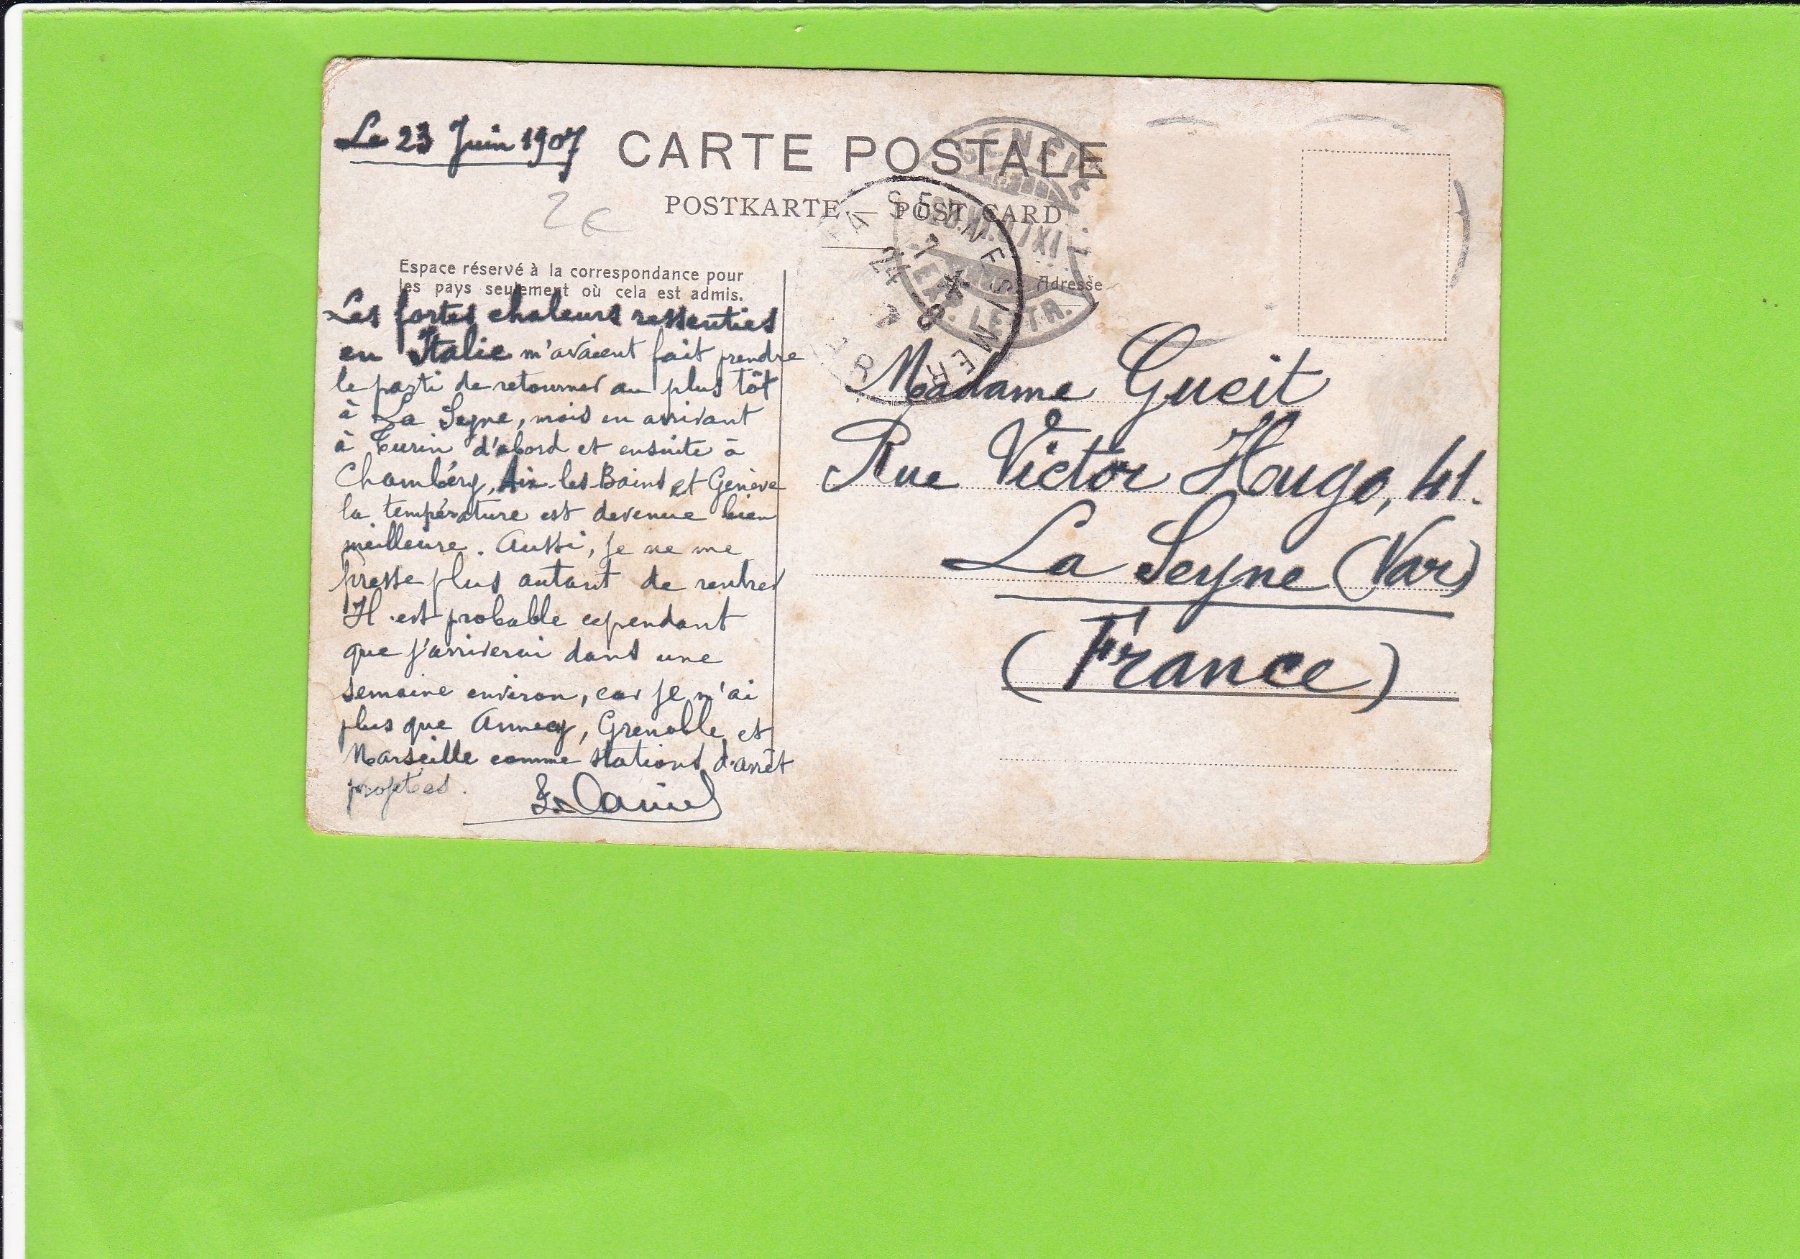 Le 23 Juin 1907
CARTE POSTALE
POSTKARTE — POST CARD
2€
GENÈVE 1
EXP. LETTR.
LA SEYNE S/ MER
24
VAR
Espace réservé à la correspondance pour
les pays seulement où cela est admis.
Adresse
Les fortes chaleurs ressenties
en Italie m'avaient fait prendre
le parti de retourner au plus tôt
à La Seyne, mais en arrivant
à Turin d'abord et ensuite à
Chambéry, Aix-les-Bains et Genève
la température est devenue bien
meilleure. Aussi, je ne me
presse plus autant de rentrer
Il est probable cependant
que j'arriverai dans une
semaine environ, car je n'ai
plus que Annecy, Grenoble et
Marseille comme stations d'arrêt
projetées.
Madame Gueit
Rue Victor Hugo, 41.
La Seyne (Var)
(France)